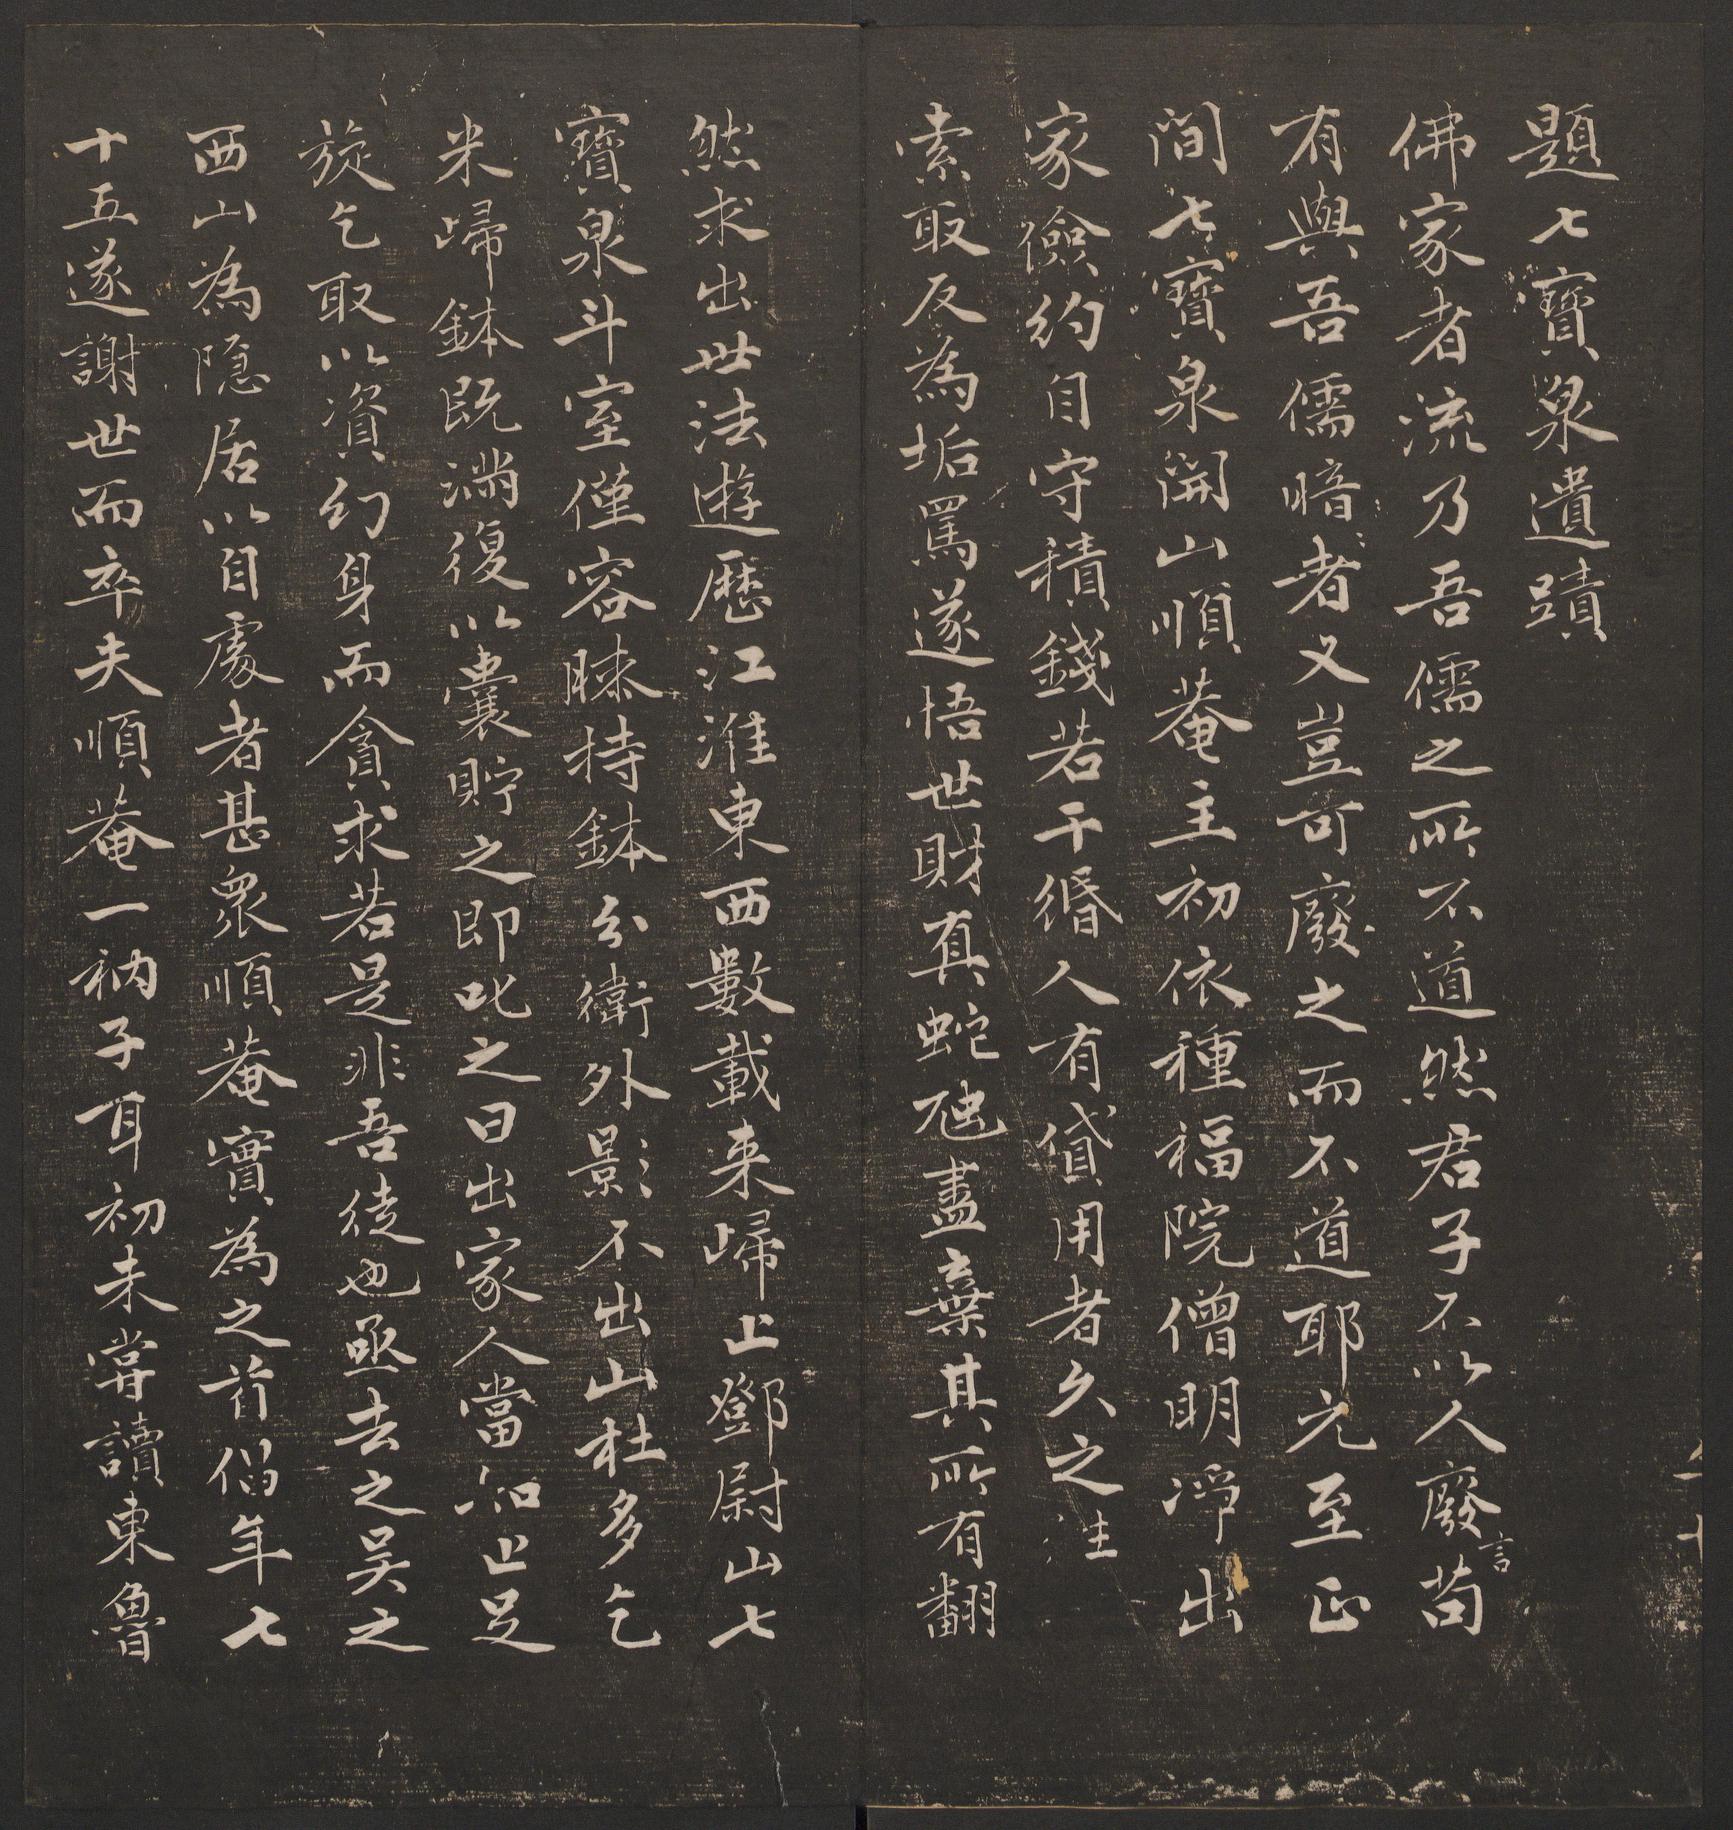 題七寶泉遺蹟
佛家者流乃吾儒之所不道然君子不以人廢言苟
有與吾儒暗者又豈可廢之而不道耶元至正
間七寶泉開山順菴主初依種福院僧明淨出
家儉約自守積錢若干緡人有貸用者久之往
索取反為垢罵遂悟世財真蛇虺盡棄其所有翻
然求出世法遊歷江淮東西數載来歸止鄧尉山七
寶泉斗室僅容膝持鉢分衛外影不出山杜多乞
米歸鉢既滿復以囊貯之即叱之曰出家人當知止足
旋乞取以資幻身而貪求若是非吾徒也亟去之吳之
西山為隱居以自處者甚眾順菴實為之首倡年七
十五遂謝世而卒夫順菴一衲子耳初未甞讀東魯